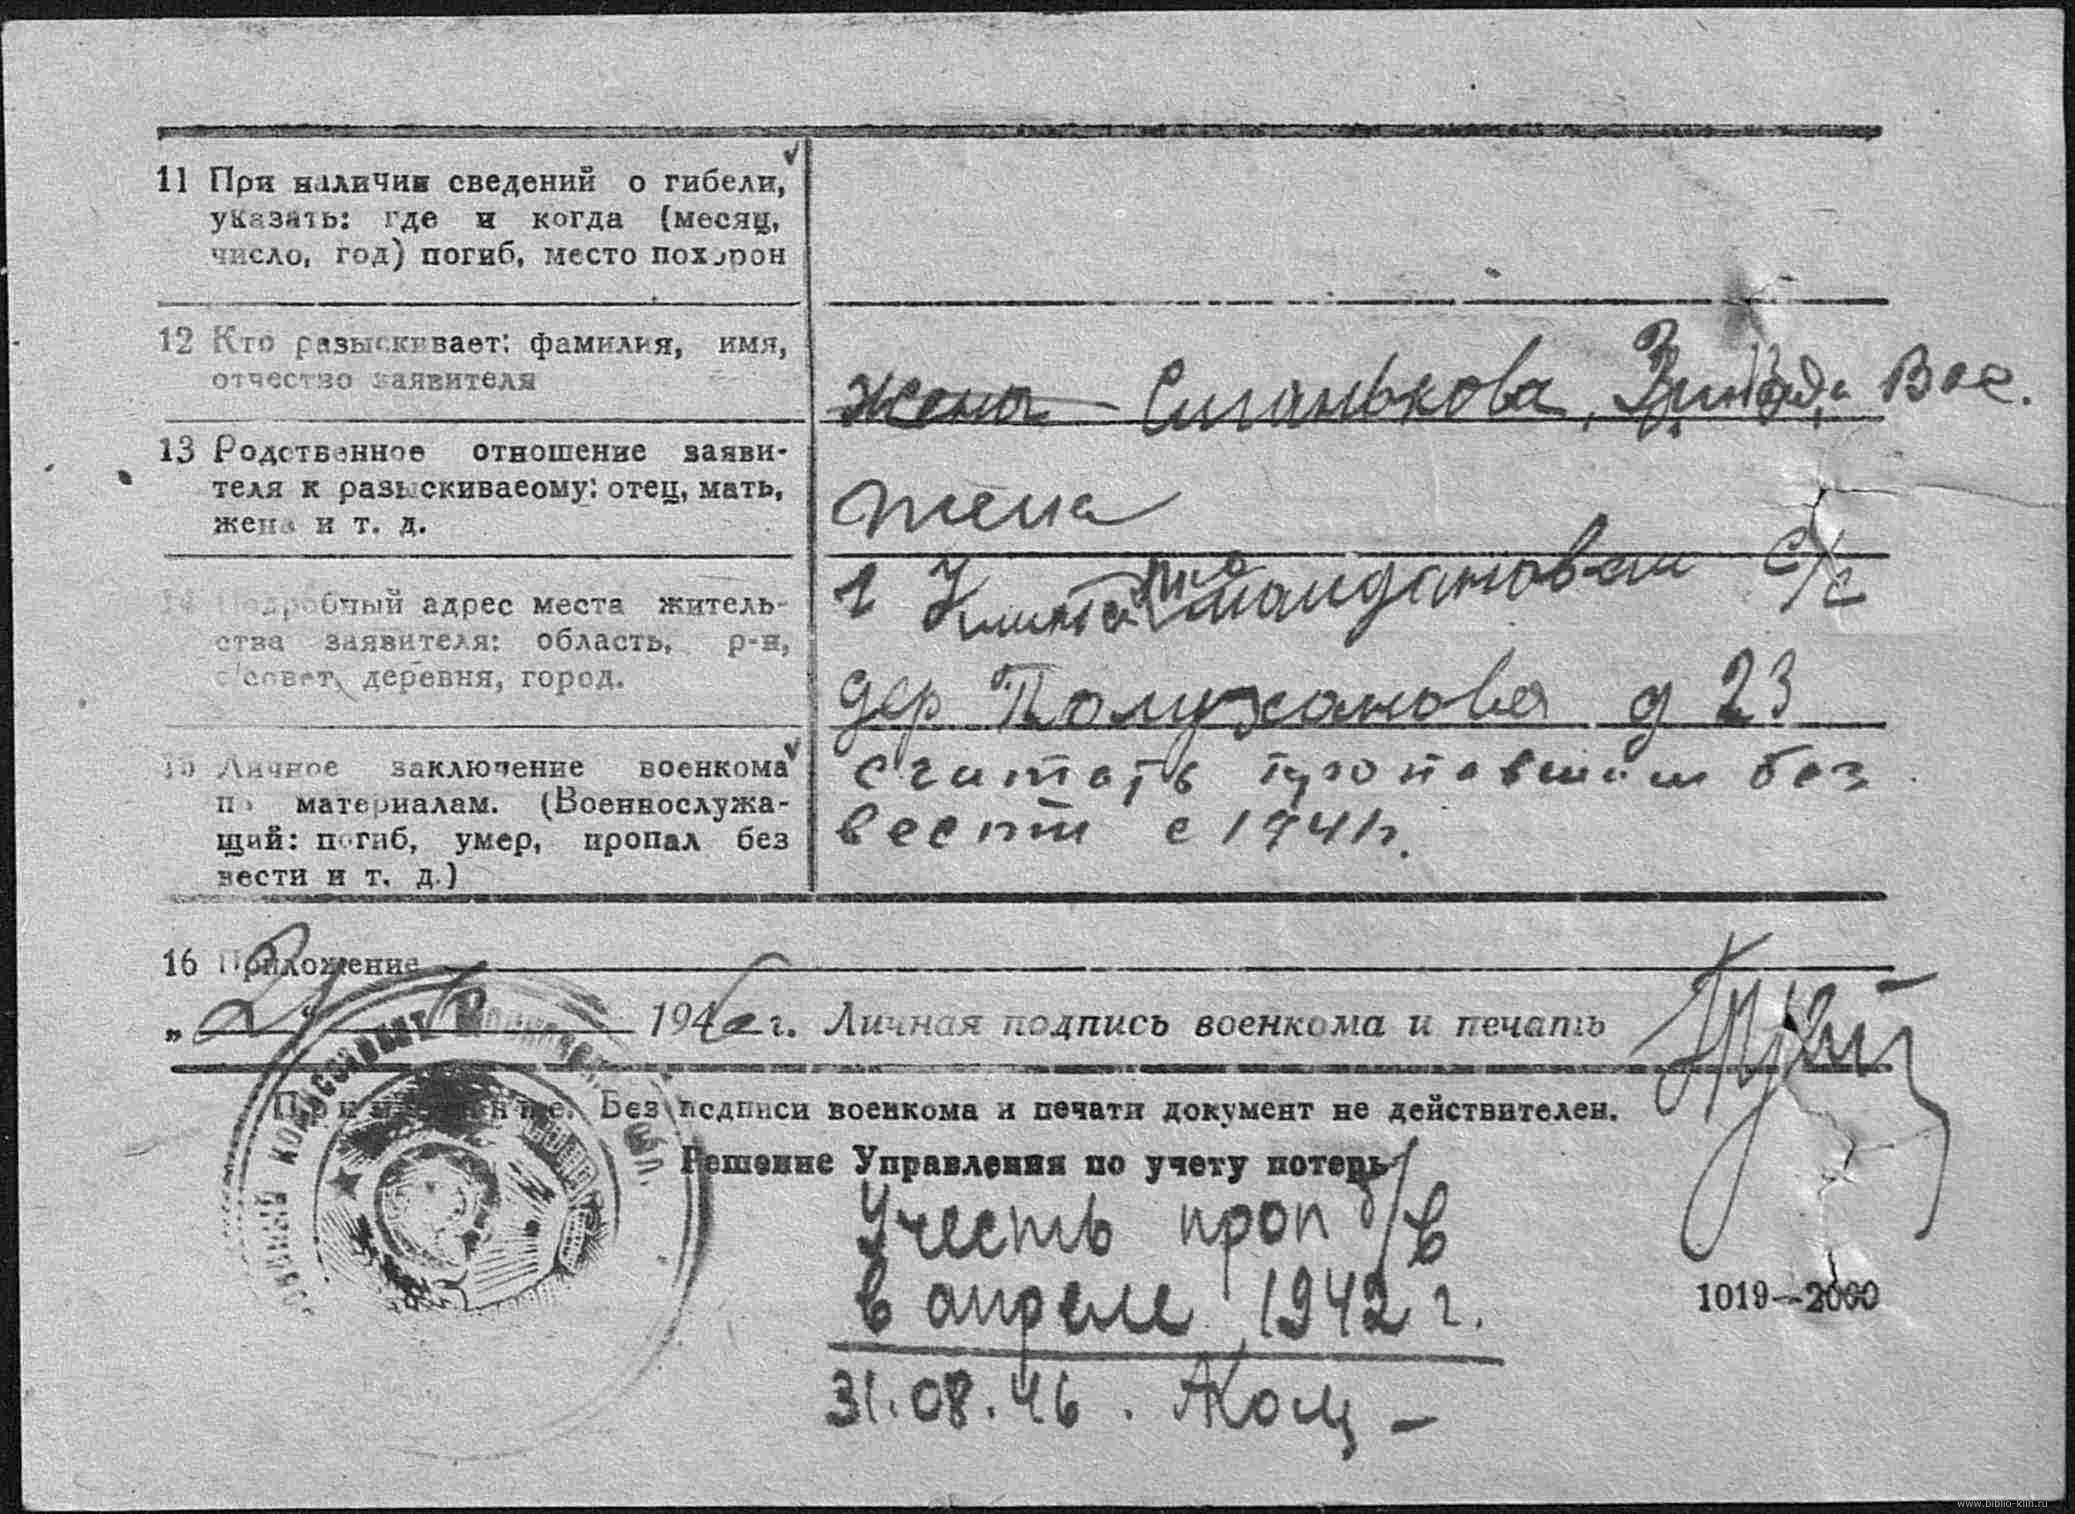 11 При наличии сведений о гибели,
указать: где и когда (месяц,
число, год) погиб, место похорон
12 Кто разыскивает: фамилия, имя,
отчество заявителя
жена — Сиганькова, Вас.
13 Родственное отношение заяви-
теля к разыскиваеому: отец, мать,
жена и т. д.
жена
14 Подробный адрес места житель-
ства заявителя: область, р-н,
с/совет, деревня, город.
г Клин Майдановский с/с
дер Полуханово д 23
15 Личное заключение военкома
по материалам. (Военнослужа-
щий: погиб, умер, пропал без
вести и т. д.)
Считать пропавшим без
вести с 1941 г.
16 Приложение
„ 1946 г. Личная подпись военкома и печать
Примечание. Без подписи военкома и печати документ не действителен.
Решение Управления по учету потерь
Учесть проп б/в
в апреле 1942 г.
31.08.46.
1019—2000
www.biblio-klin.ru